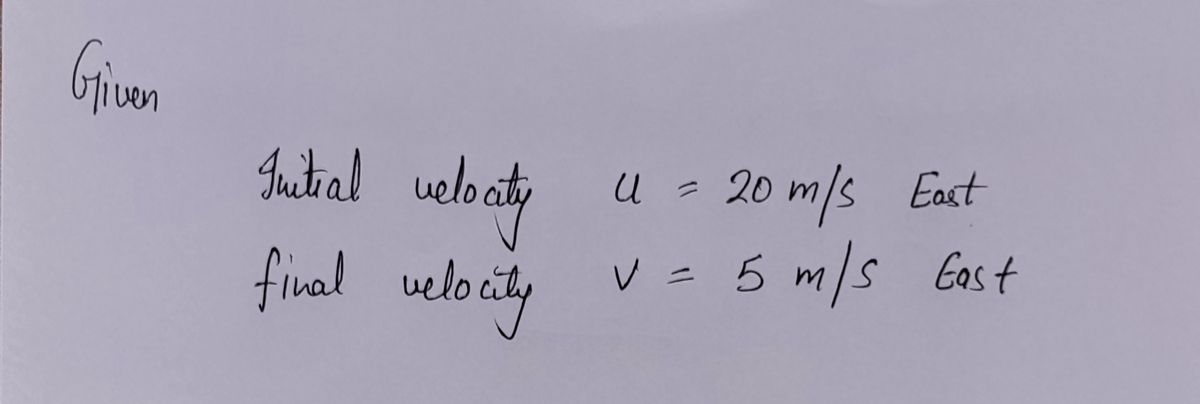 Given
Initial velocity u = 20 m/s East
final velocity v = 5 m/s East